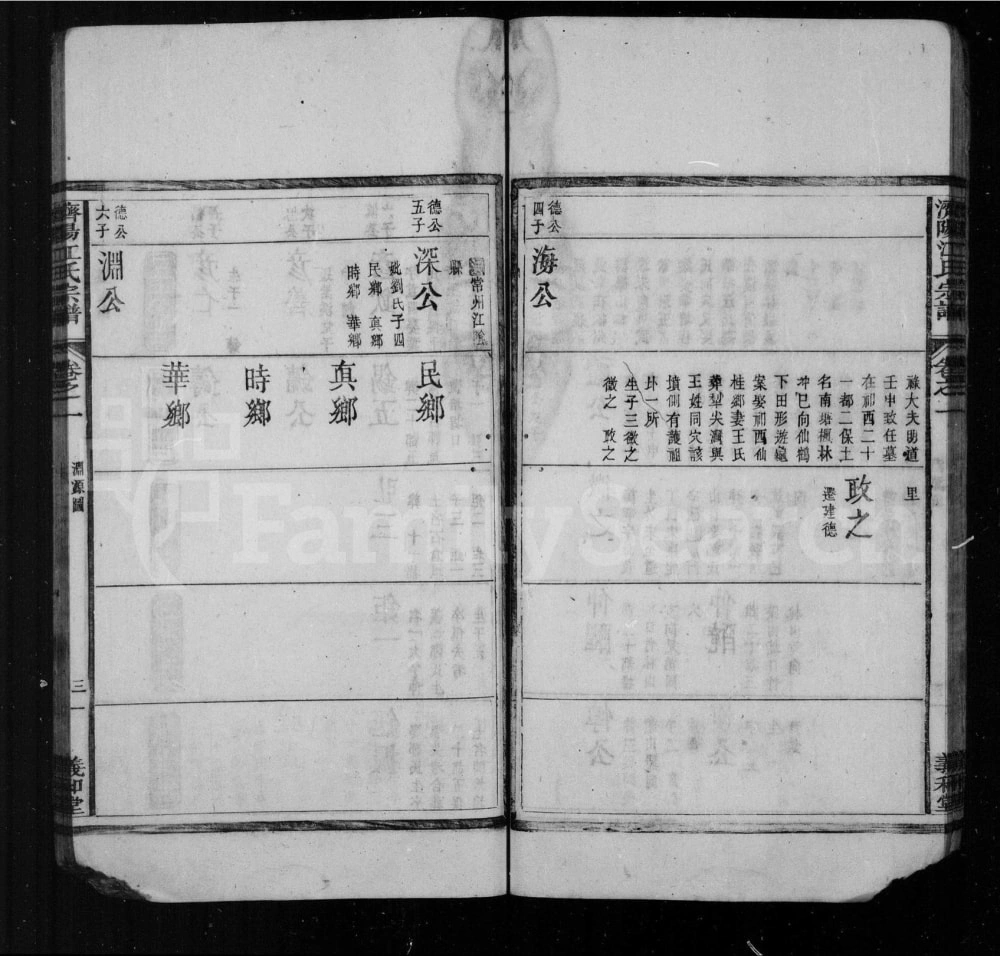 濟陽江氏宗譜
卷之一
義和堂
德公
四子
海公
祿大夫明道
壬申政任墓
在祁西二十
一都二保土
名南塘楓林
冲巳向仙鶴
下田形遊龜
案娶祁西仙
桂鄉妻王氏
葬犂尖澗與
王姓同穴該
墳側有護祖
邱一所
生子三徵之
微之 政之
里
政之
遷建德
常州江陰
縣
德公
五子
深公
妣劉氏子四
民鄉 真鄉
時鄉 華鄉
民鄉
真鄉
時鄉
華鄉
德公
六子
淵公
濟陽江氏宗譜
卷之一
淵源圖
三
義和堂
FamilySearch